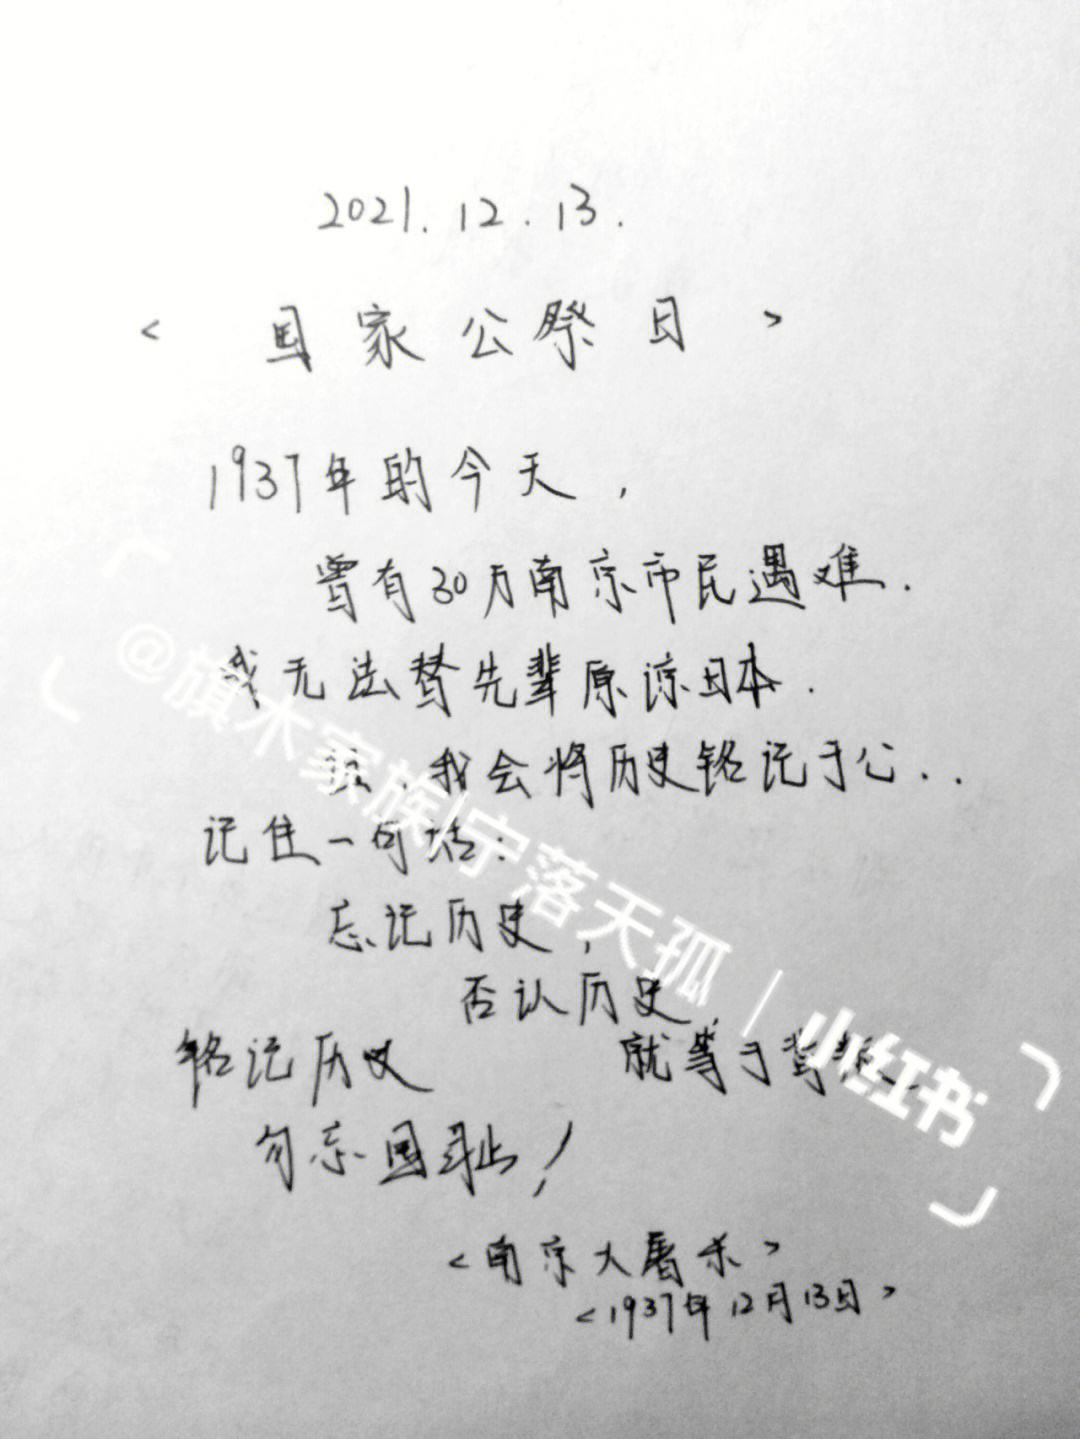 2021.12.13.
< 国家公祭日 >
1937年的今天，
曾有30万南京市民遇难.
我无法替先辈原谅日本.
我会将历史铭记于心..
记住一句话:
忘记历史,
否认历史,
就等于背叛..
铭记历史
勿忘国耻!
<南京大屠杀>
<1937年12月13日>
@旗木家族|宁落天孤 | 小红书